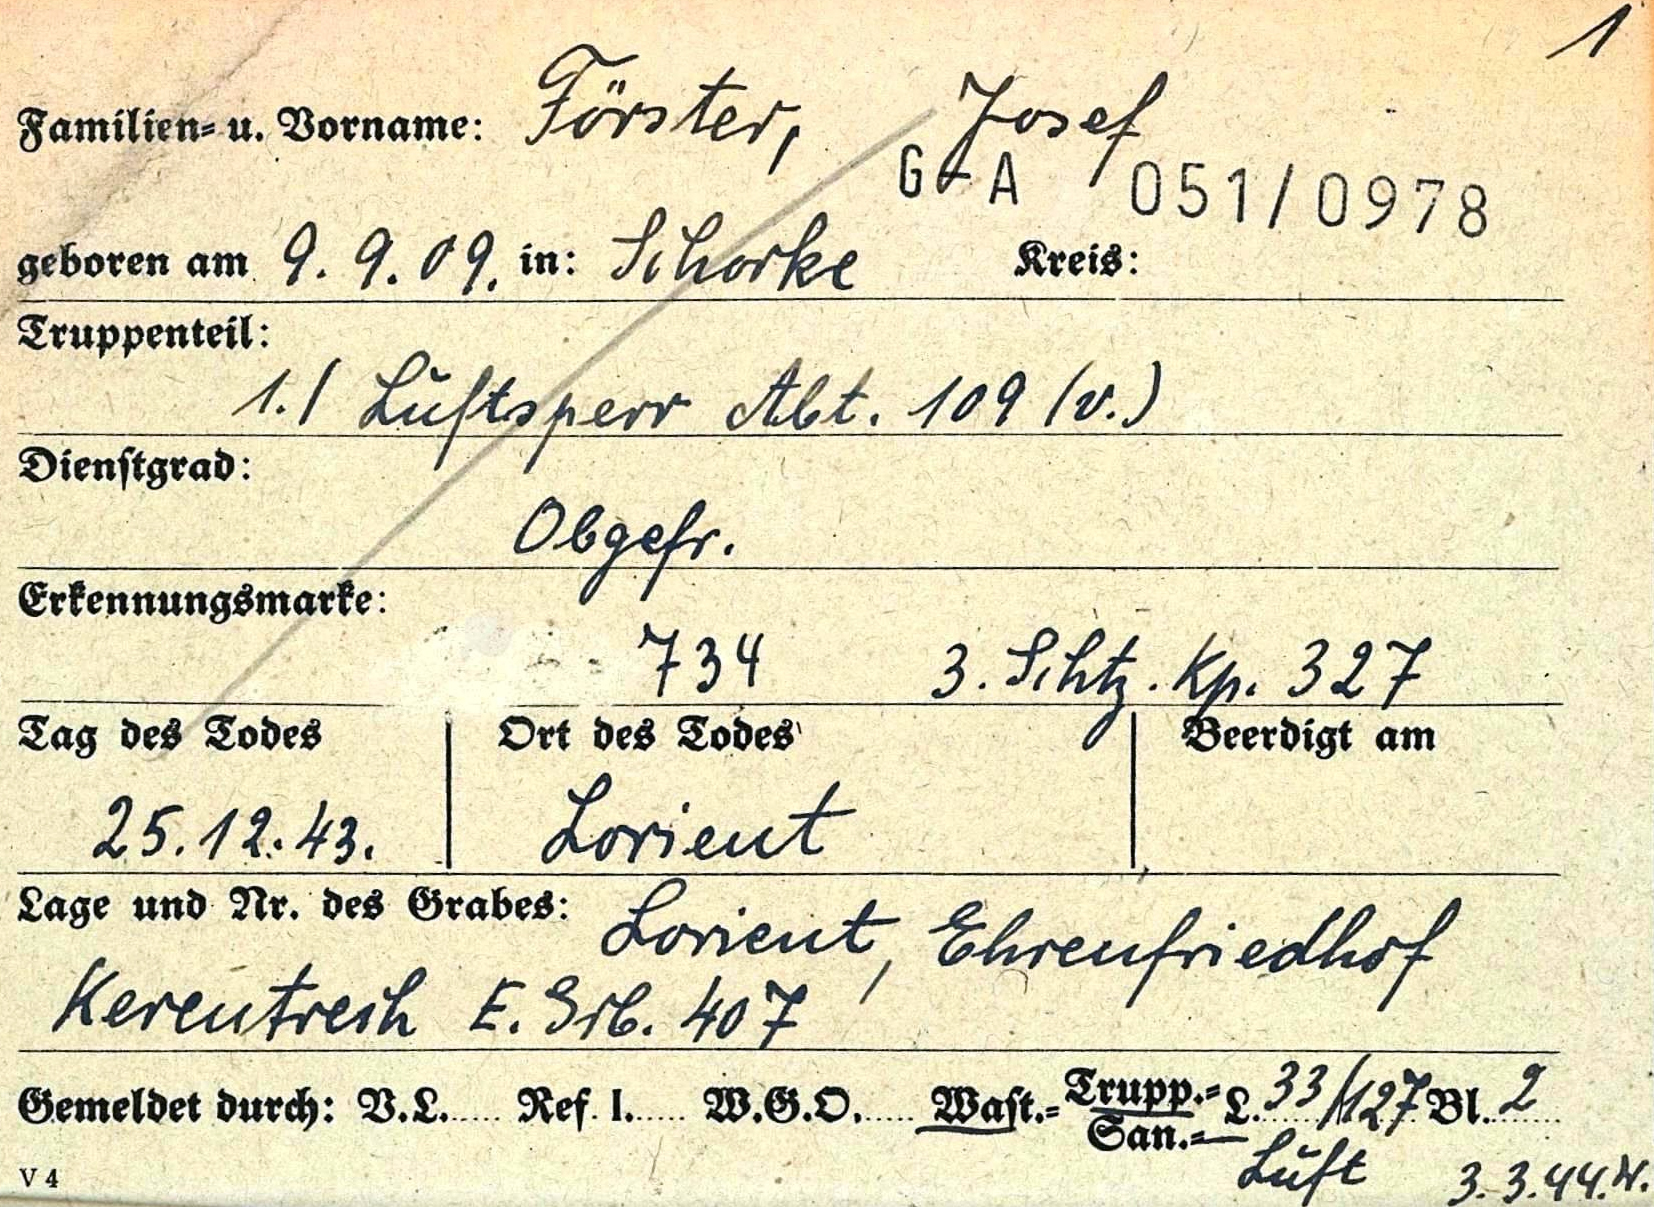 1
Familien- u. Vorname: Förster, Josef
G-A 051/0978
geboren am 9.9.09. in: Schorke Kreis:
Truppenteil:
1./ Luftsperr Abt. 109 (v.)
Dienstgrad:
Obgefr.
Erkennungsmarke:
734 3. Schtz. Kp. 327
Tag des Todes Ort des Todes Beerdigt am
25.12.43. Lorient
Lage und Nr. des Grabes: Lorient, Ehrenfriedhof
Kerentrech E. Grb. 407
Gemeldet durch: V.L..... Ref. I..... W.G.O..... Wast.= Trupp.= L. 33/127 Bl. 2
San.=
Luft 3.3.44.
V 4